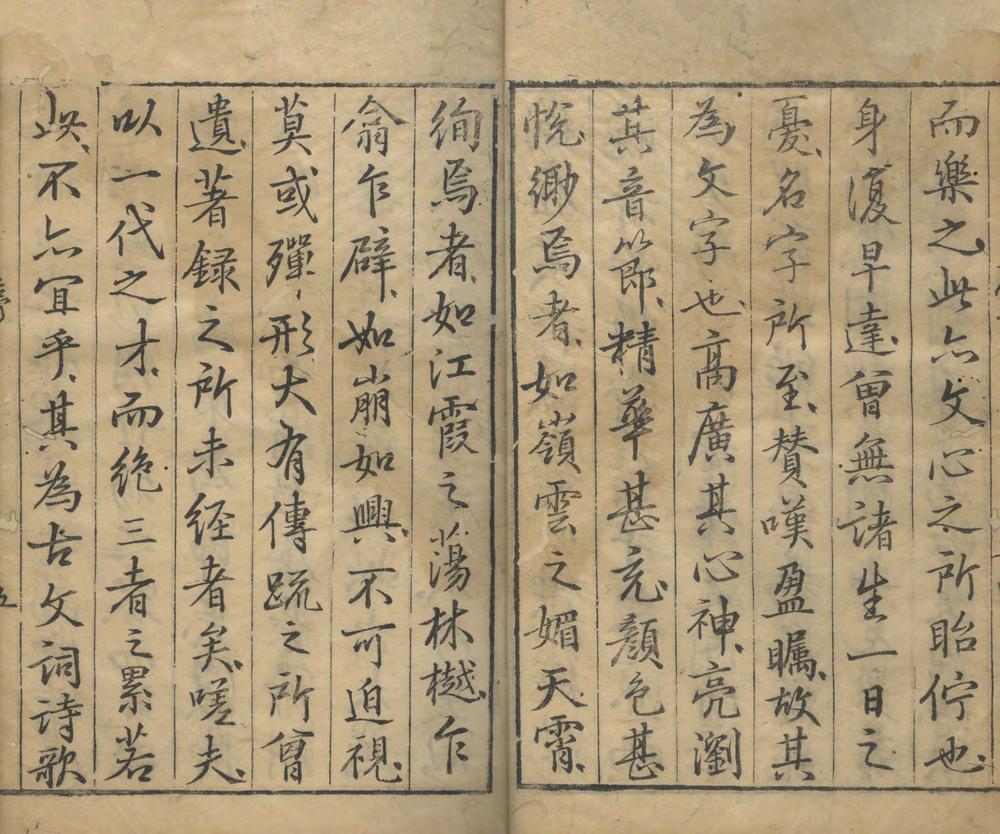 而樂之此亦文心之所眙佇也
身復早達曾無諸生一日之
憂名字所至賛嘆盈矚故其
為文字也高廣其心神亮瀏
其音節精華甚充顏色甚
悅緲焉者如嶺雲之媚天霄
絢焉者如江霞之蕩林樾乍
翕乍辟如崩如興不可迫視
莫或殫形大有傳䟽之所曾
遺著録之所未經者矣嗟夫
以一代之才而绝三者之累若
此不亦宜乎其為古文詞詩歌